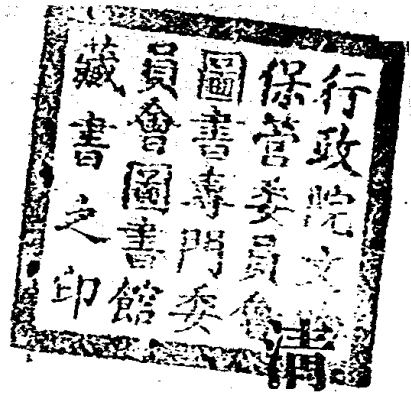 行政院文
保管委員會
圖書專門委
員會圖書館
藏書之印
清